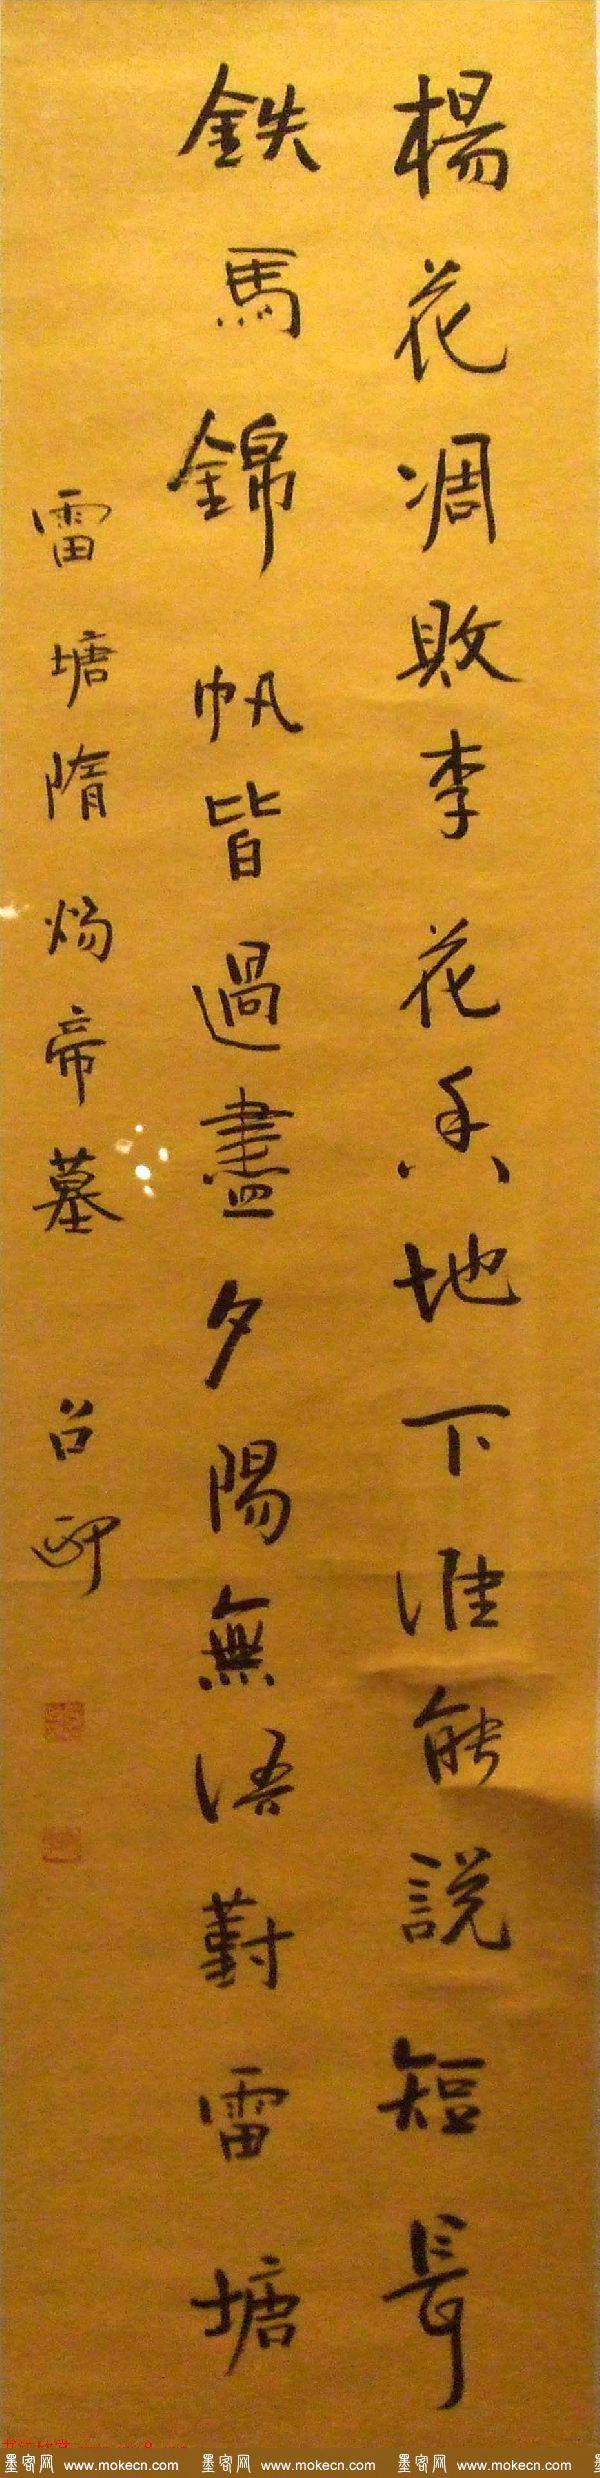 楊花凋敗李花香地下誰能說短長
鉄馬錦帆皆過盡夕陽無語對雷塘
雷塘隋煬帝墓
墨客网 www.mokecn.com 墨客网 www.mokecn.com 墨客网 www.mokecn.com